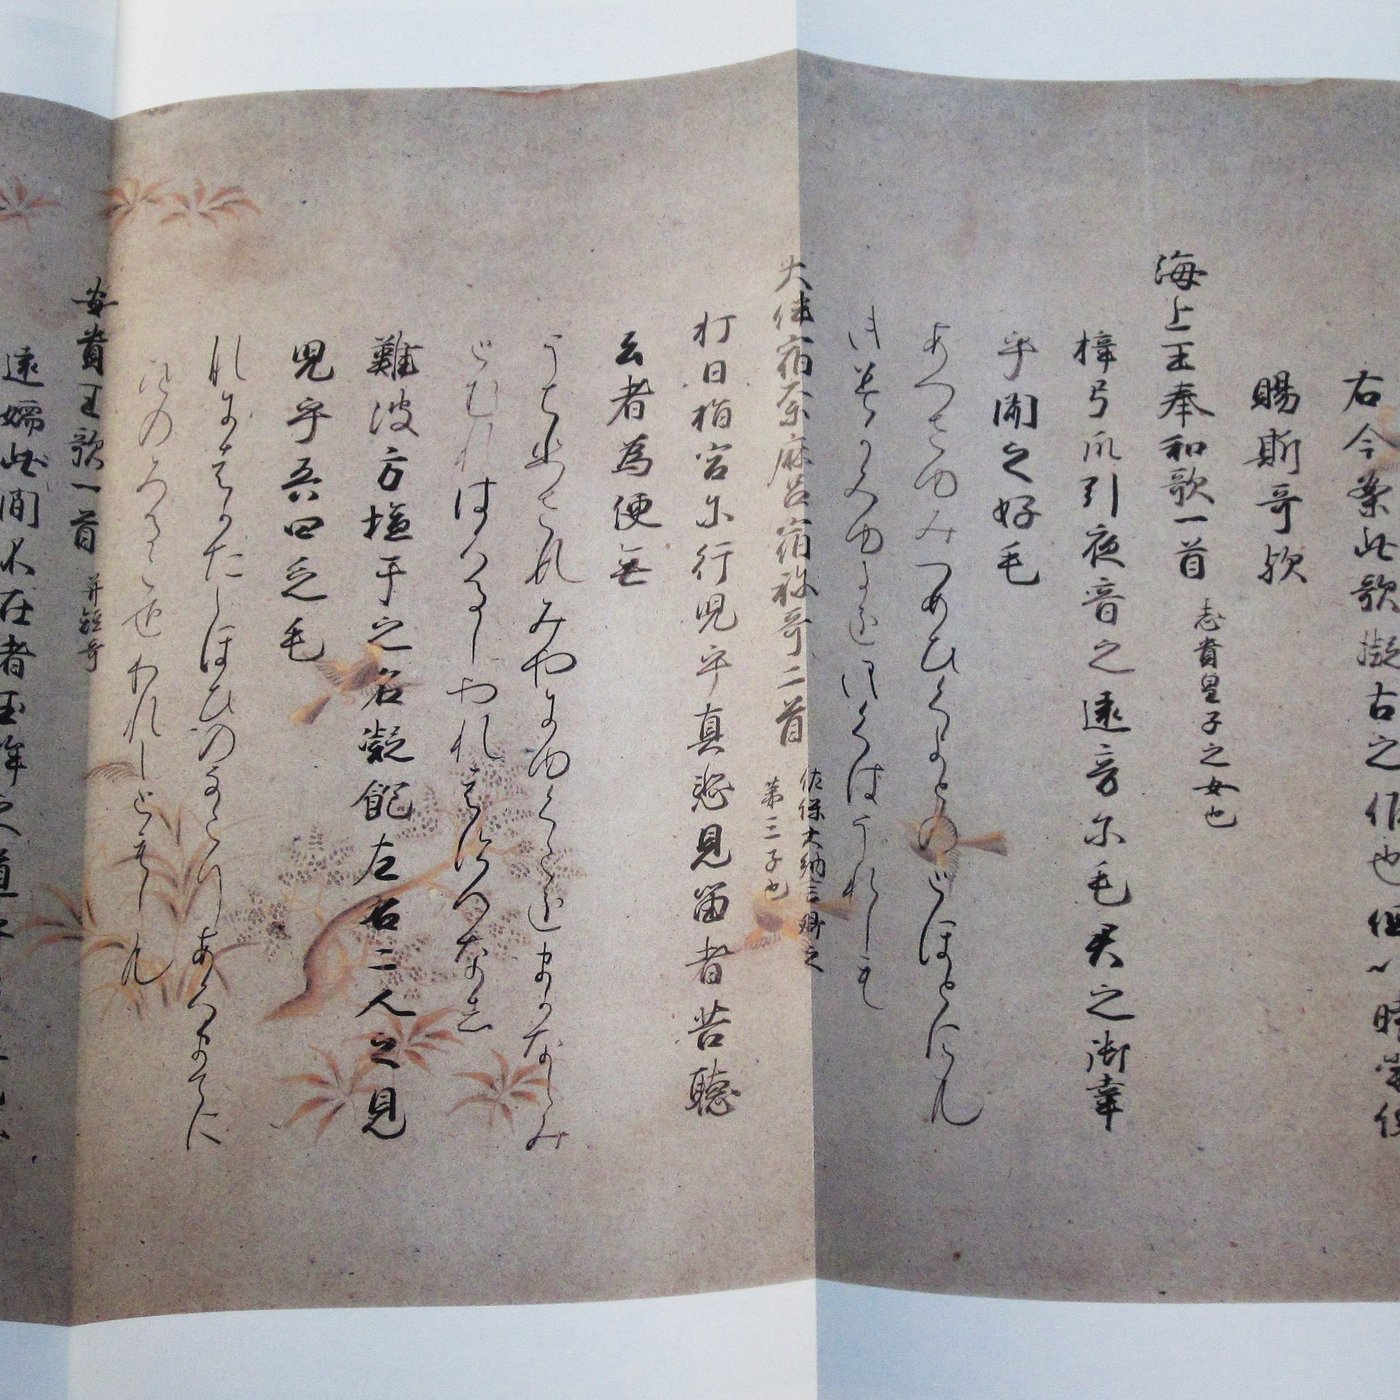 右今案此歌擬古之作也但以時當便
賜斯哥歟
海上王奉和歌一首 志貴皇子之女也
梓弓爪引夜音之遠音尓毛君之御幸
乎聞之好毛
あつさゆみつまひくよとのとほとにも
きみかみゆきをきくはうれしも
大伴宿奈麻呂宿祢哥二首 佐保大納言卿之
第三子也
打日指宮尓行児乎真悲見留者苦聴
去者為便無
うちひさすみやにゆくこをまかなしみ
とむれはくるしやれはすへなし
難波方塩干之名凝飽左右二人之見
児乎吾四乏毛
なにはかたしほひのなこりあくまてに
ひとのみるこをわれしともしも
安貴王歌一首 并短哥
遠嬬此間不在者玉桙之道乎